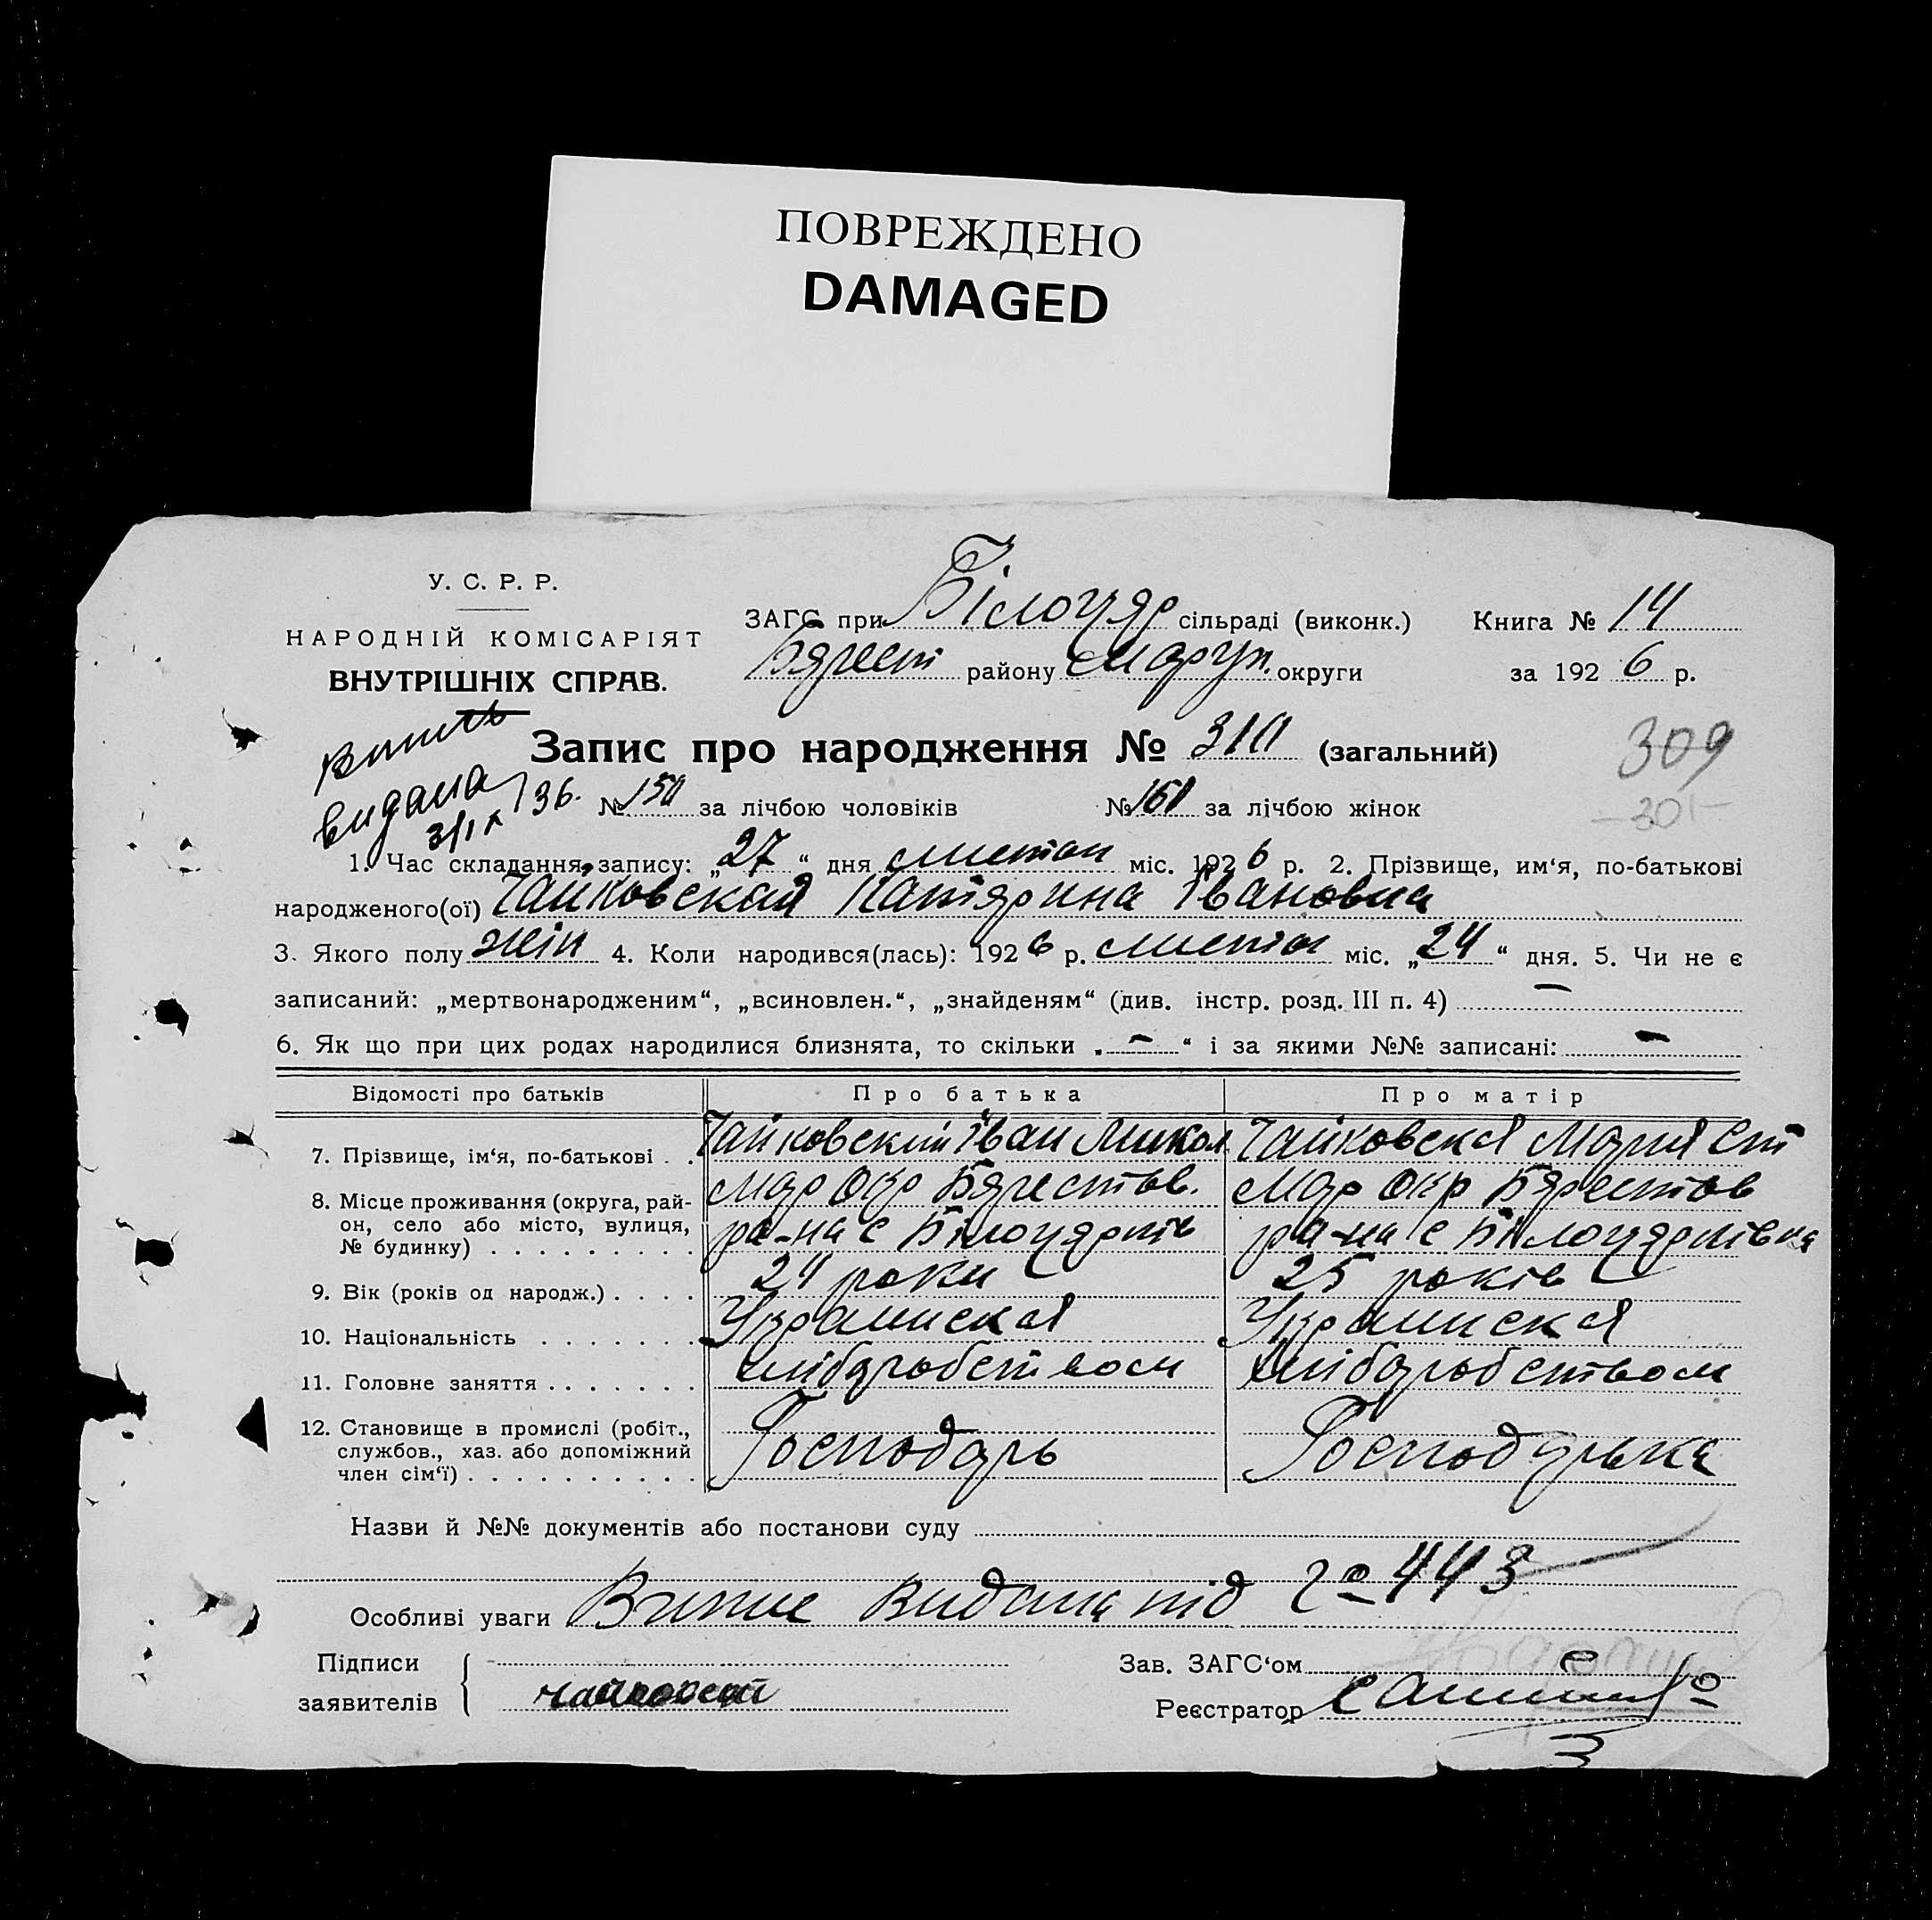 ПОВРЕЖДЕНО
DAMAGED
У. С. Р. Р.
НАРОДНІЙ КОМІСАРІЯТ
ВНУТРІШНІХ СПРАВ.
ЗАГС при Білоцяр сільраді (виконк.) Книга № 14
Бярест району Мариуп. округи за 1926 р.
Запис про народження № 310 (загальний)
309
301
видана
36. № 150 за лічбою чоловіків № 160 за лічбою жінок
1. Час складання запису: „27“ дня листоп міс. 1926 р. 2. Прізвище, им‘я, по-батькові
народженого(ої) Чайковская Катярина Івановна
3. Якого полу жін 4. Коли народився(лась): 1926 р. листоп міс. „24“ дня. 5. Чи не є
записаний: „мертвонародженим“, „всиновлен.“, „знайденям“ (див. інстр. розд. III п. 4) —
6. Як що при цих родах народилися близнята, то скільки „—“ і за якими №№ записані: —
Відомості про батьків Про батька Про матір
7. Прізвище, ім‘я, по-батькові . . Чайковский Іван Микол. Чайковская Мария Ст
8. Місце проживання (округа, рай- Мар Окр Бярестов. Мар Окр Бярестов
он, село або місто, вулиця,
№ будинку) . . . . . . . . . ра-на с Білоцярків ра-на с Білоцярківка
9. Вік (років од народж.) . . . . 24 роки 25 років
10. Національність . . . . . . . Украинская Украинская
11. Головне заняття . . . . . . . хлібаробством хлібаробством
12. Становище в промислі (робіт.,
службов., хаз. або допоміжний Господарь Господарька
член сім‘ї) . . . . . . . . . .
Назви й №№ документів або постанови суду
Особливі уваги Випис видана під № 443
Підписи Зав. ЗАГС‘ом
заявителів Чайковский Реєстратор